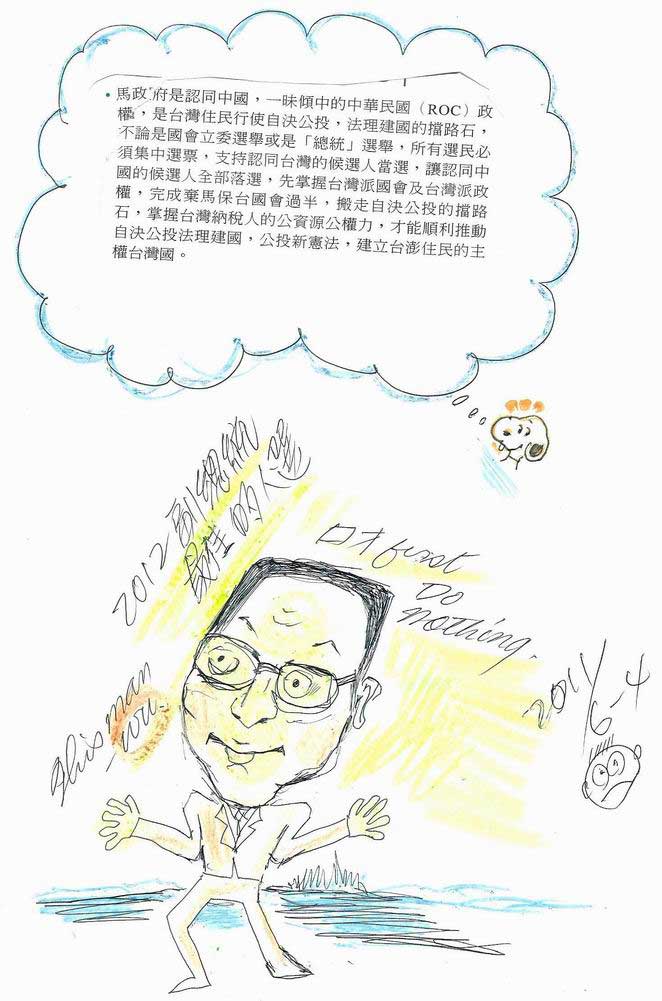 • 馬政府是認同中國，一昧傾中的中華民國（ROC）政
權，是台灣住民行使自決公投，法理建國的擋路石，
不論是國會立委選舉或是「總統」選舉，所有選民必
須集中選票，支持認同台灣的候選人當選，讓認同中
國的候選人全部落選，先掌握台灣派國會及台灣派政
權，完成棄馬保台國會過半，搬走自決公投的擋路
石，掌握台灣納稅人的公資源公權力，才能順利推動
自決公投法理建國，公投新憲法，建立台澎住民的主
權台灣國。
2012副總統
最佳的人選
口才first
Do
nothing.
this man
2011/6-4